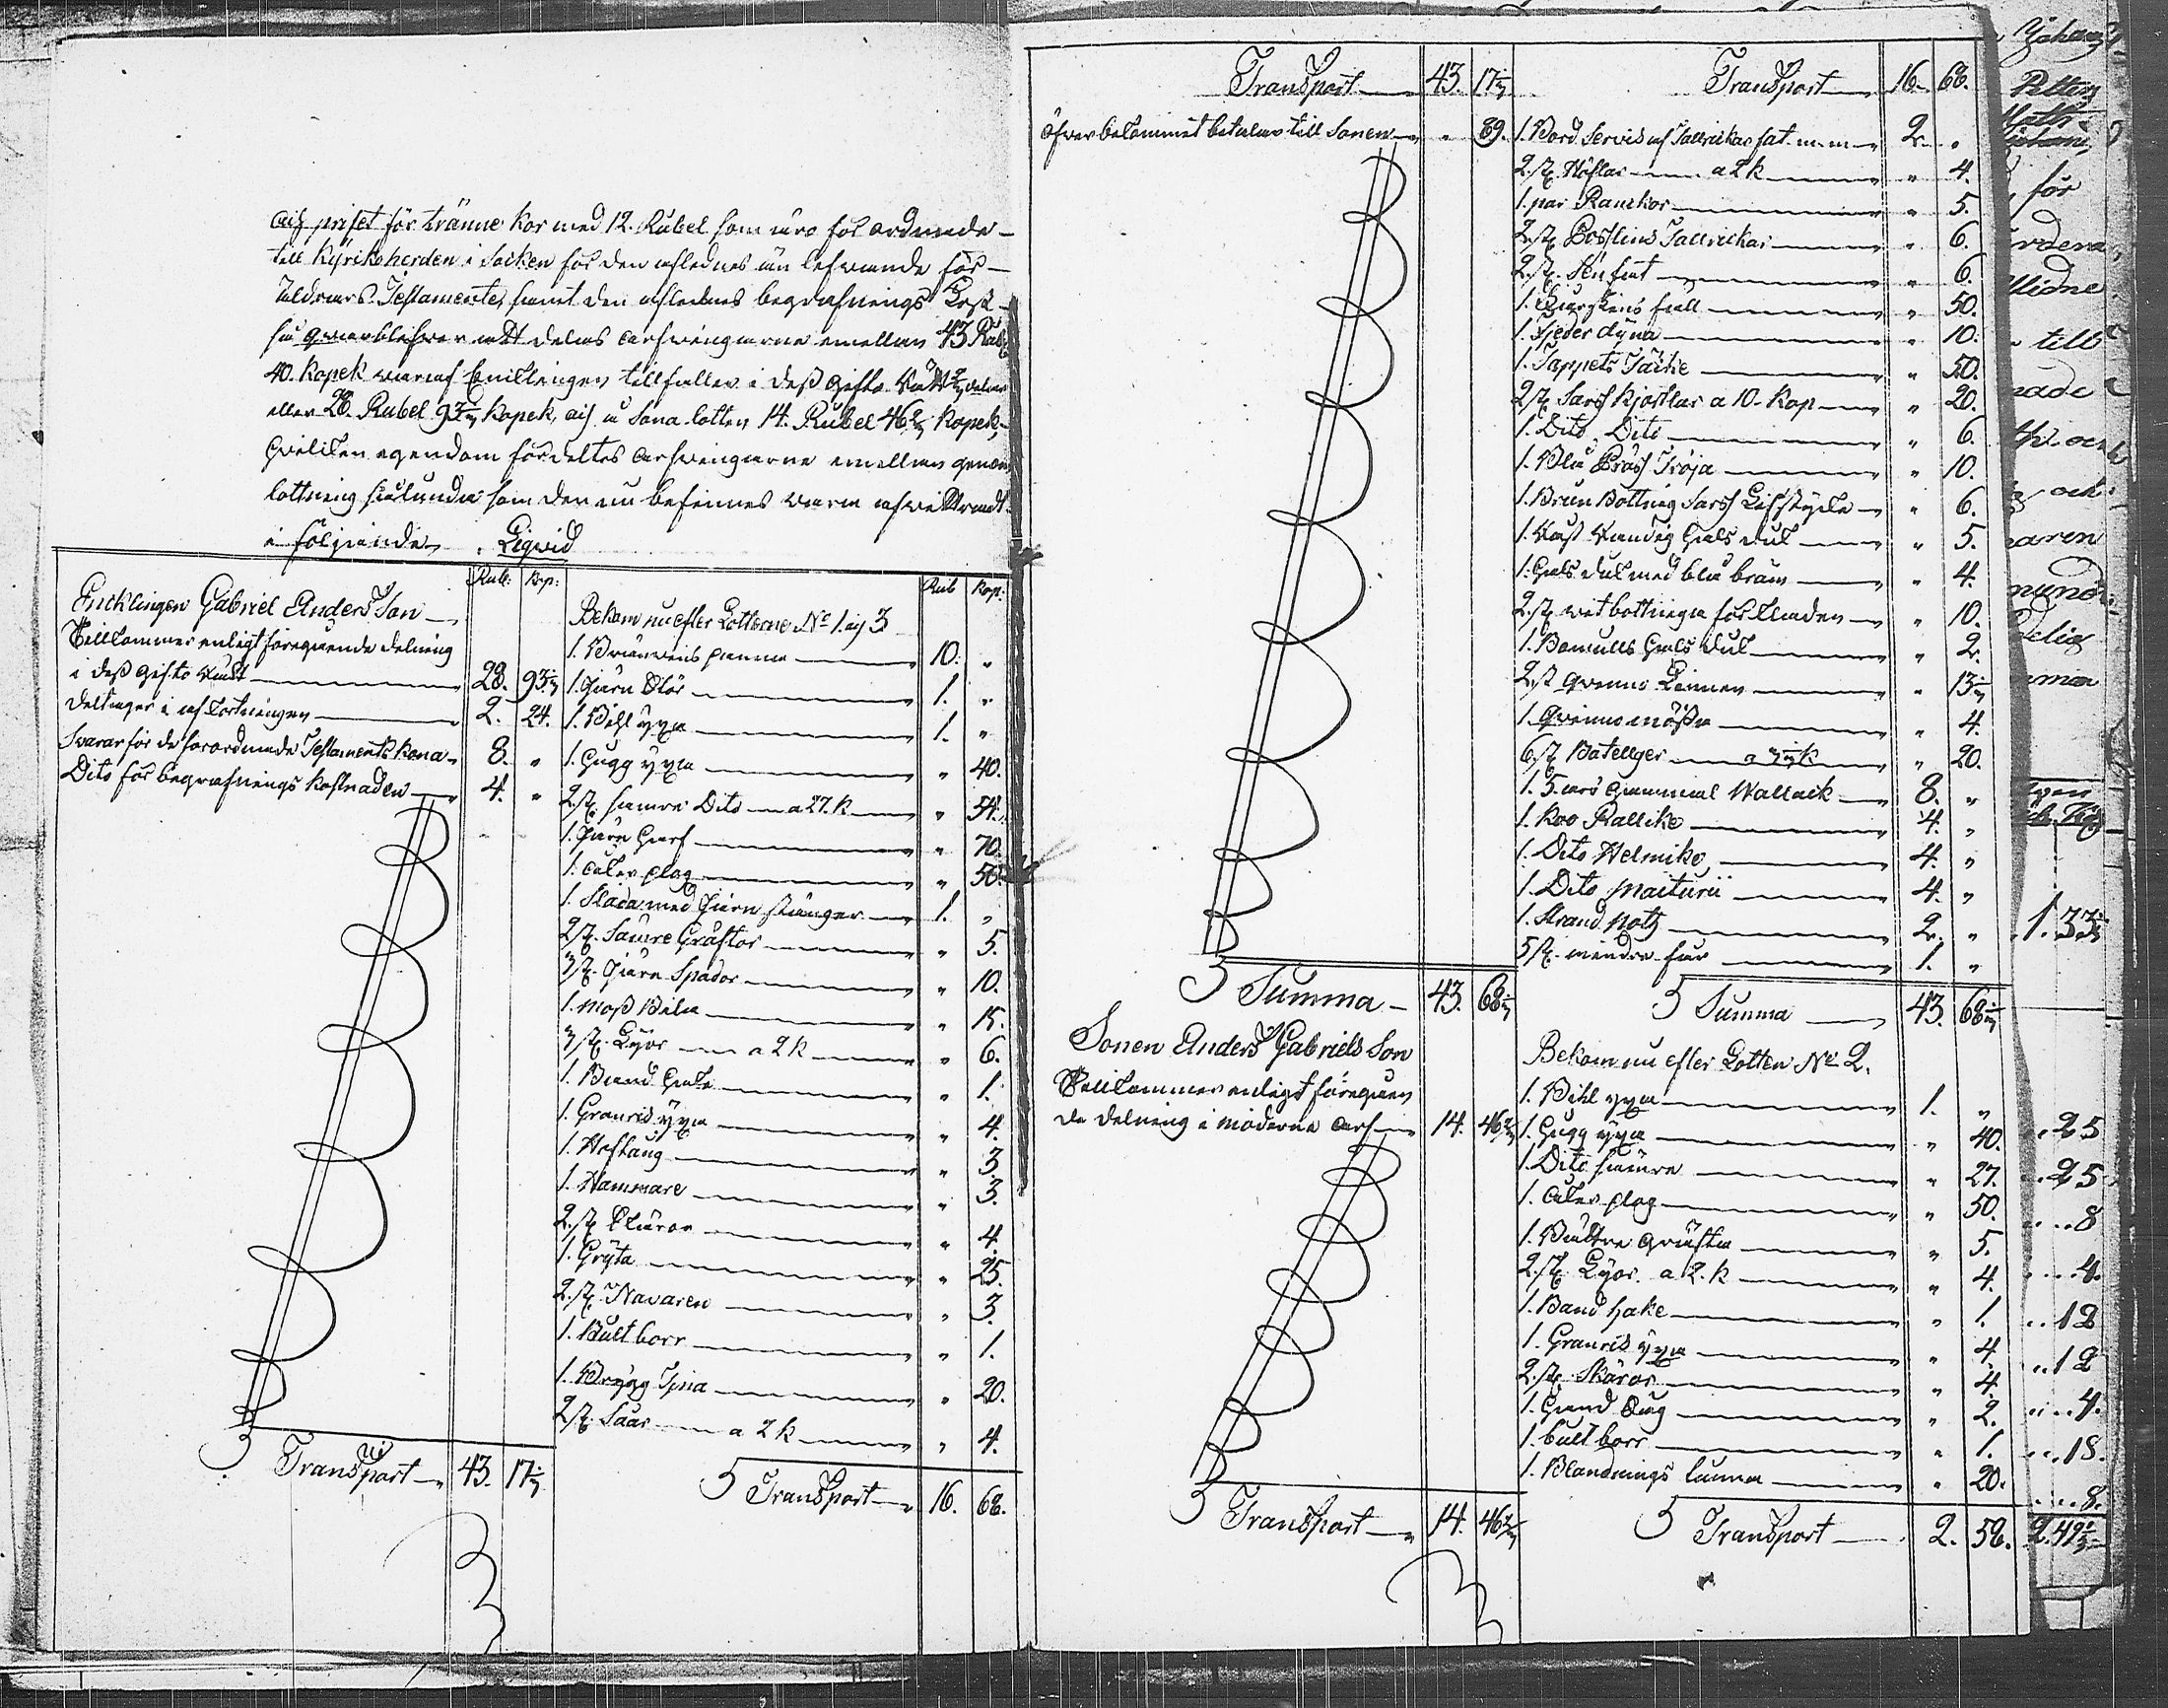 och priset för tränne kor med 12. Rubel som äro för ordnade
till Kyrkoherden i Socken för den aflednes än lefwande för-
äldrars Testamente, samt den aflednes begrafnings Kost
så qwarblefwer att delas arfwingarne emellan 43 Rub
40. Kopek waraf Encklingen tillfaller i dess gifto rätt
eller 28. Rubel 93 1/3 Kopek, och a Sona lotten 14. Rubel 46 2/3 Kopek,
hvilken egendom fördeltes arfwingarne emellan genom
lottning sålunda som den nu befinnes wara afwittrad
i följande Liqvid
Rub: Kop:
Encklingen Gabriel Andersson
Tillkommer enligt föregående delning
i dess gifto rätt 28. 93 1/3
deltager i aflottningen 2. 24.
Swarar för de förordnade Testaments korna 8. "
Dito för begrafnings kostnaden 4. "
Transport 43. 17 1/3
Rub Kop:
Bekom nu efter Lotterne No 1. och 3
1. Bränwins panna 10. "
1. Järn Stör 1. "
1. Bihl yxa 1. "
1. Hugg yxa " 40.
2. st. sämre Dito a 27. K " 54.
1. Järn Harf " 70.
1. åker plog " 50.
1. Släda med Järn stänger 1. "
2 st. Sämre Gräftor " 5.
3 st. Järn Spador " 10.
1. Moss Bila " 15.
3 st. Lijor a 2 k " 6.
1. Band Hake " 1.
1. Granris yxa " 4.
1. Hoftång " 3.
1. Hammare " 3.
2. st. Skäror " 4.
1. Gryta " 25.
2. st. Navaren " 3.
1. Bult borr " 1.
1. Brygg Tina " 20.
2 st. Såar a 2 k " 4.
Transport 16. 68.
Transport 43. 17 1/3
öfwerbekommit betalar till Sonen " 89.
Summa 43. 68 1/3
Sonen Anders Gabriels Son
Tillkommer enligt föregåen
de delning i möderne arf 14. 46 2/3
Transport 14. 46 2/3
Transport 16. 68.
1. Bord Servis af Tallrickar fat m. m 2. "
2. st. Höflar a 2 k " 4.
1. par Ranckor " 5.
2. st. Postlins Tallrickar " 6.
2. st. Sten fat " 6.
1. fäll " 50.
1. Fjeder dyna " 10.
1. Tappets Täcke " 50.
2 st. Sars Kjortlar a 10. Kop " 20.
1. Dito Dito " 6.
1. Blå Tröja " 10.
1. Brun Bottnig Sars Lifstycke " 6.
1. Randig Hals duk " 5.
1. Hals duk med blå bräm " 4.
2. st. wit bottniga förkläden " 10.
1. Bomulls Hals duk " 2.
2. st qwinns Linnen " 13 1/3
1. Qvinns mössa " 4.
6. st. Botellger a 3 1/3 k " 20.
1. 5. års gammal Wallack 8. "
1. Koo Rallike 4. "
1. Dito Helmike 4. "
1. Dito Maiturii 4. "
1. Strand Not 2. "
5 st. mindre får 1. "
Summa 43. 68 1/3
Bekom nu efter Lotten No 2.
1. Bihl yxa 1. "
1. Hugg yxa " 40.
1. Dito sämre " 27.
1. åker plog " 50.
1. Bättre gräfta " 5.
2. st. Lijor a 2. k " 4.
1. Band hake " 1.
1. Granris yxa " 4.
2. st. Skäror " 4.
1. Hand Såg " 2.
1. bult borr " 1.
1. Blandnings kanna " 20.
Transport 2. 58.
Petters
för
till
ock
1. 33
25
25
8
4.
12
12
4.
18.
8.